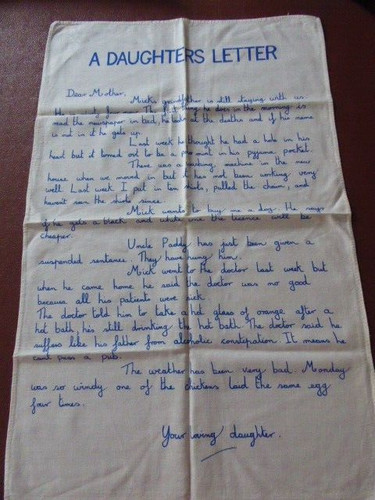 A DAUGHTERS LETTER
Dear Mother,
Micks grandfather is still staying with us.
He is ninty four now. The first thing he does in the morning is
read the newspaper in bed, he looks at the deaths and if his name
is not in it he gets up.
Last week he thought he had a hole in his
head but it turned out to be a pea mint in his pyjama pocket.
There was a washing machine in the new
house when we moved in but it has not been working very
well. Last week I put in ten shirts, pulled the chain, and
havent seen the shirts since.
Mick wants to buy me a dog. He says
if he gets a black and white one the licence will be
cheaper.
Uncle Paddy has just been given a
suspended sentence. They have hung him.
Mick went to the doctor last week but
when he came home he said the doctor was no good
because all his patients were sick.
The doctor told him to take a hot glass of orange after a
hot bath, his still drinking the hot bath. The doctor said he
suffers like his father from alcoholic constipation. It means he
cant pass a pub.
The weather has been very bad. Monday
was so windy one of the chickens laid the same egg
four times.
Your loving daughter.